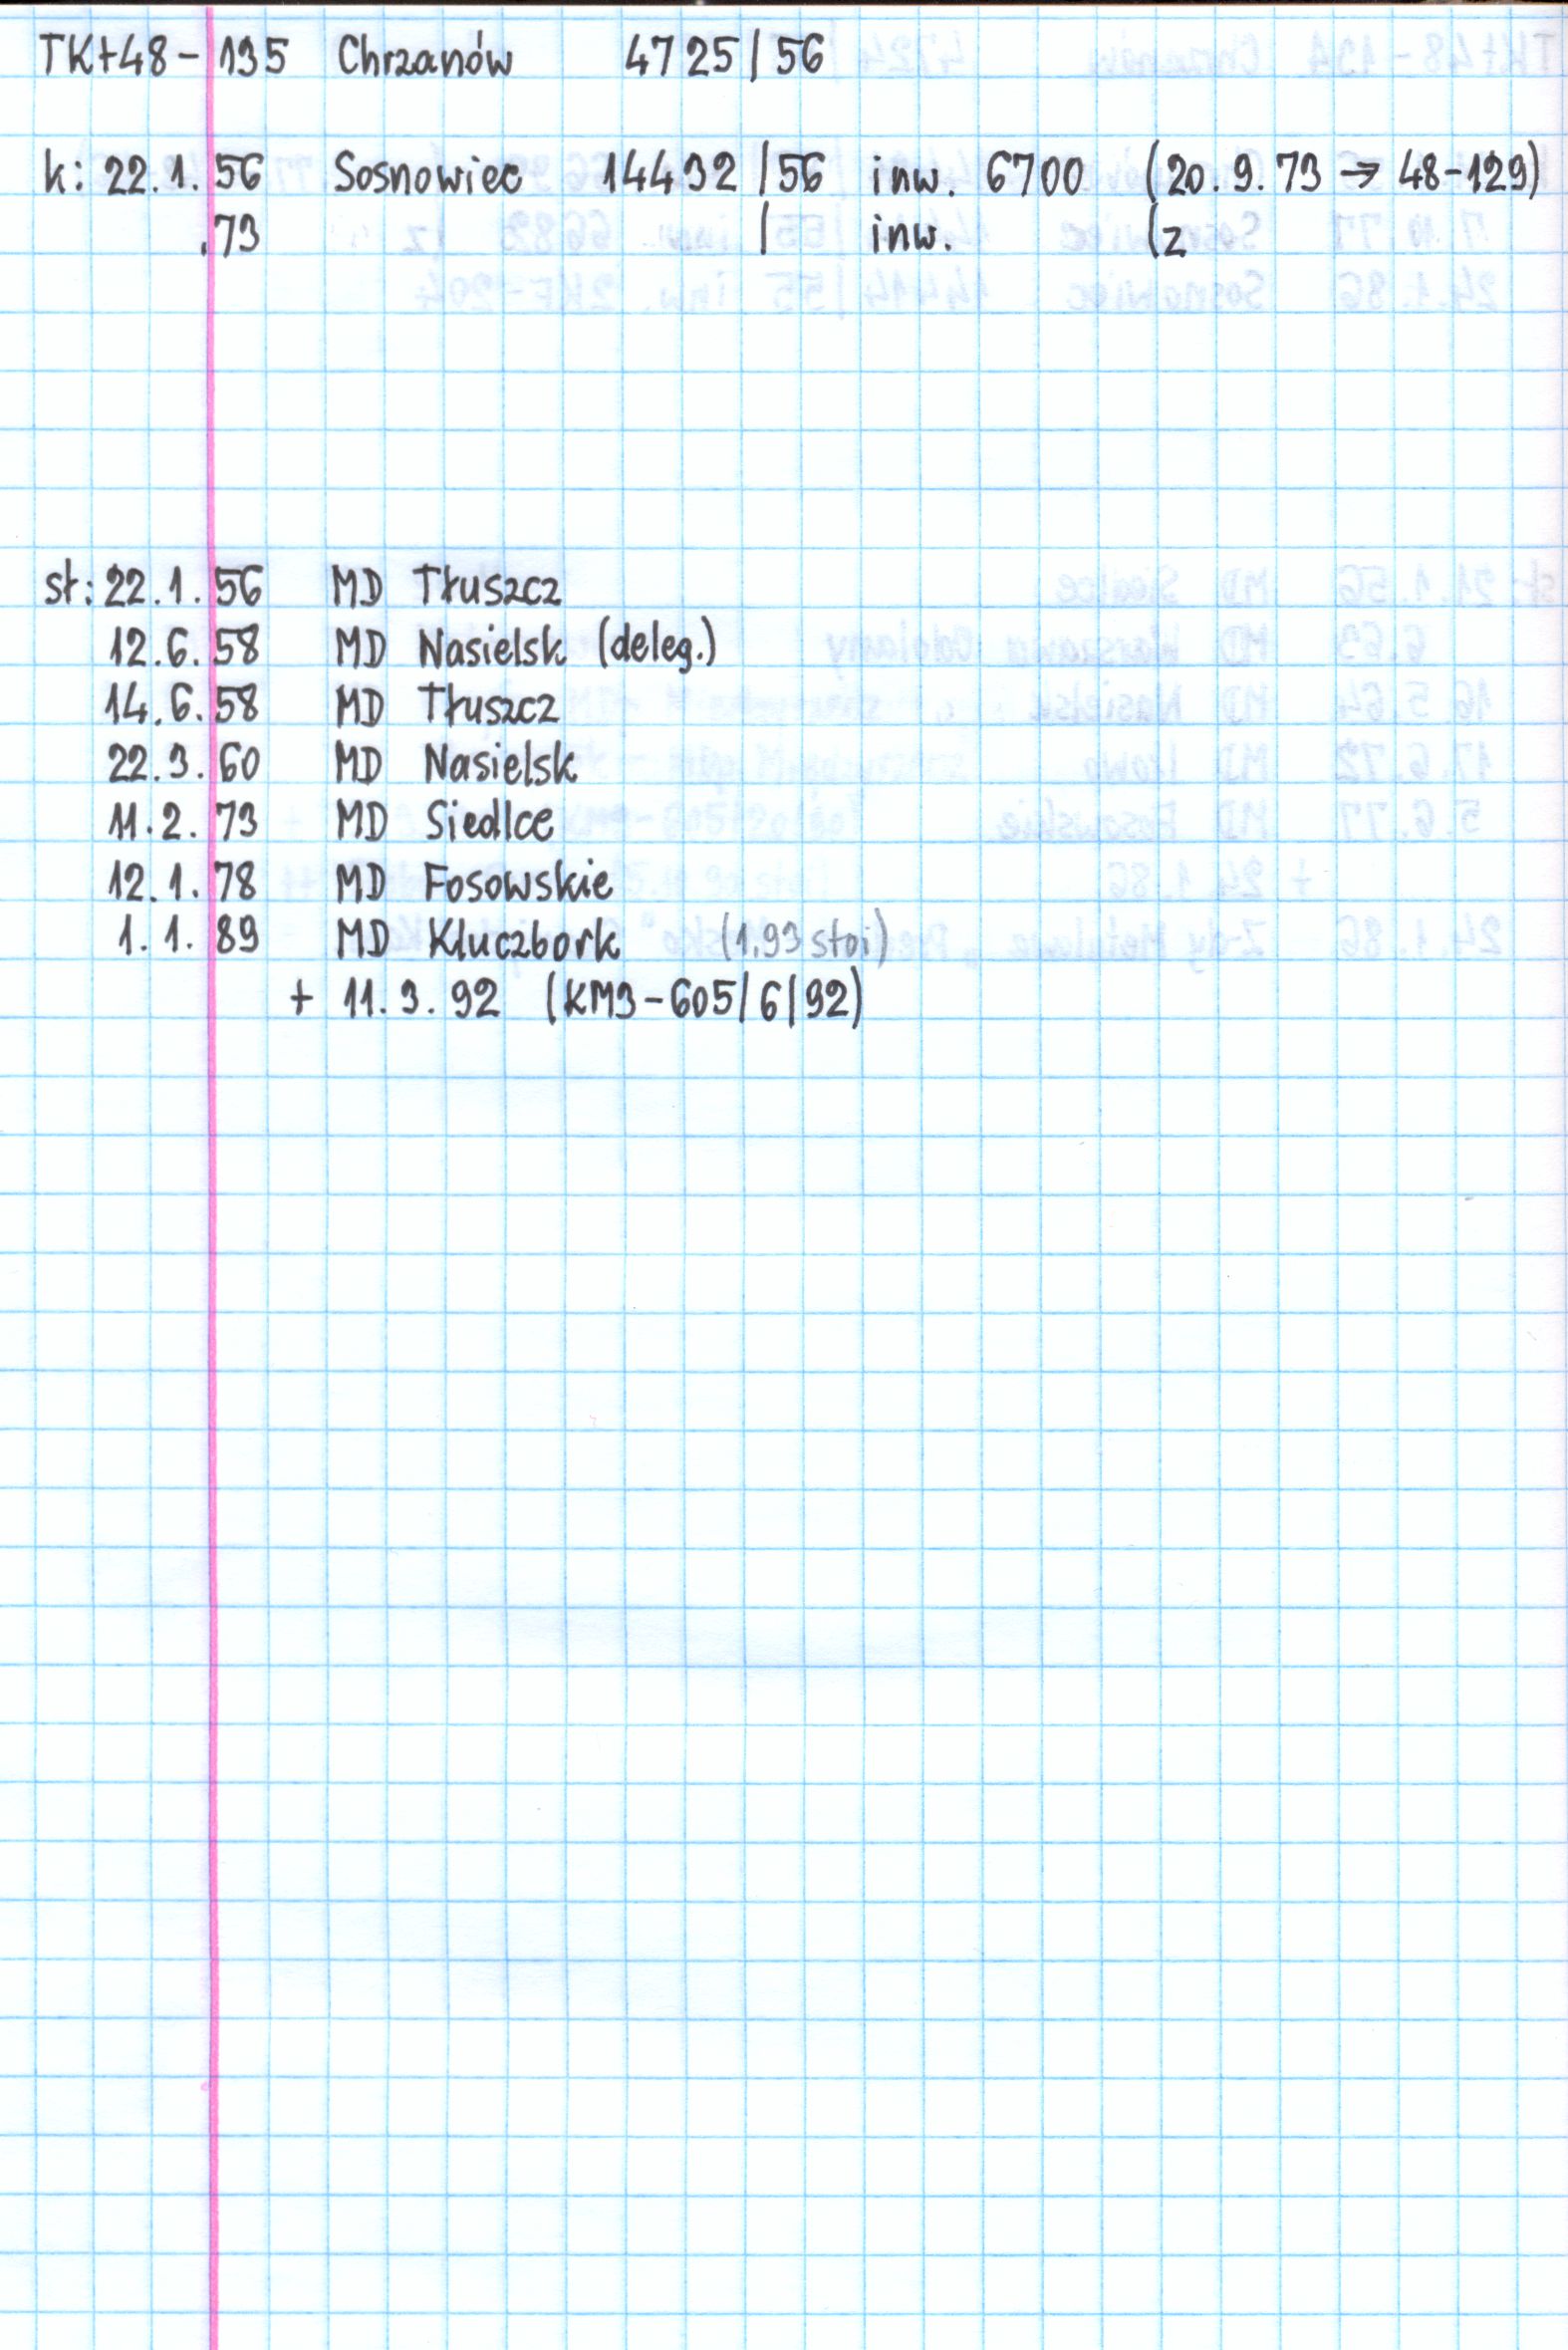 TKt48-195 Chrzanów 4725/56
k: 22.1.56 Sosnowiec 14432/56 inw. 6700 (20.9.73 → 48-129)
.73 / inw. (z
st: 22.1.56 MD Tłuszcz
12.6.58 MD Nasielsk (deleg.)
14.6.58 MD Tłuszcz
22.3.60 MD Nasielsk
11.2.73 MD Siedlce
12.1.78 MD Fosowskie
1.1.89 MD Kluczbork (1.93 stoi)
+ 11.3.92 (KM3-605/6/92)